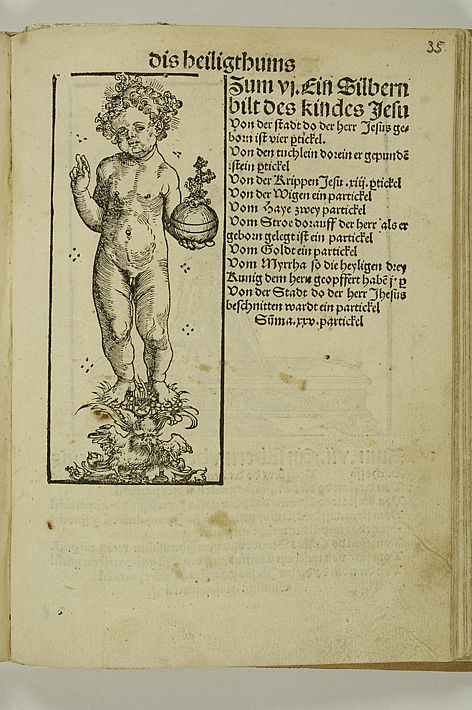 35.
dis heiligthums
Zum vj. Ein Silbern
bilt des kindes Jesu
Von der stadt do der herr Jesus ge-
born ist vier ptickel.
Von den tuchlein dorein er gepundē
ist ein ptickel
Von der Krippen Jesu .xiij. ptickel
Von der Wigen ein partickel
Vom Haye zwey partickel
Vom Stroe dorauff der herr als er
geborn gelegt ist ein partickel
Vom Goldt ein partickel
Vom Myrrha so die heyligen drey
Kunig dem hern geopffert habē j. p
Von der Stadt do der herr Jhesus
beschnitten wardt ein partickel
Sūma .xxv. partickel